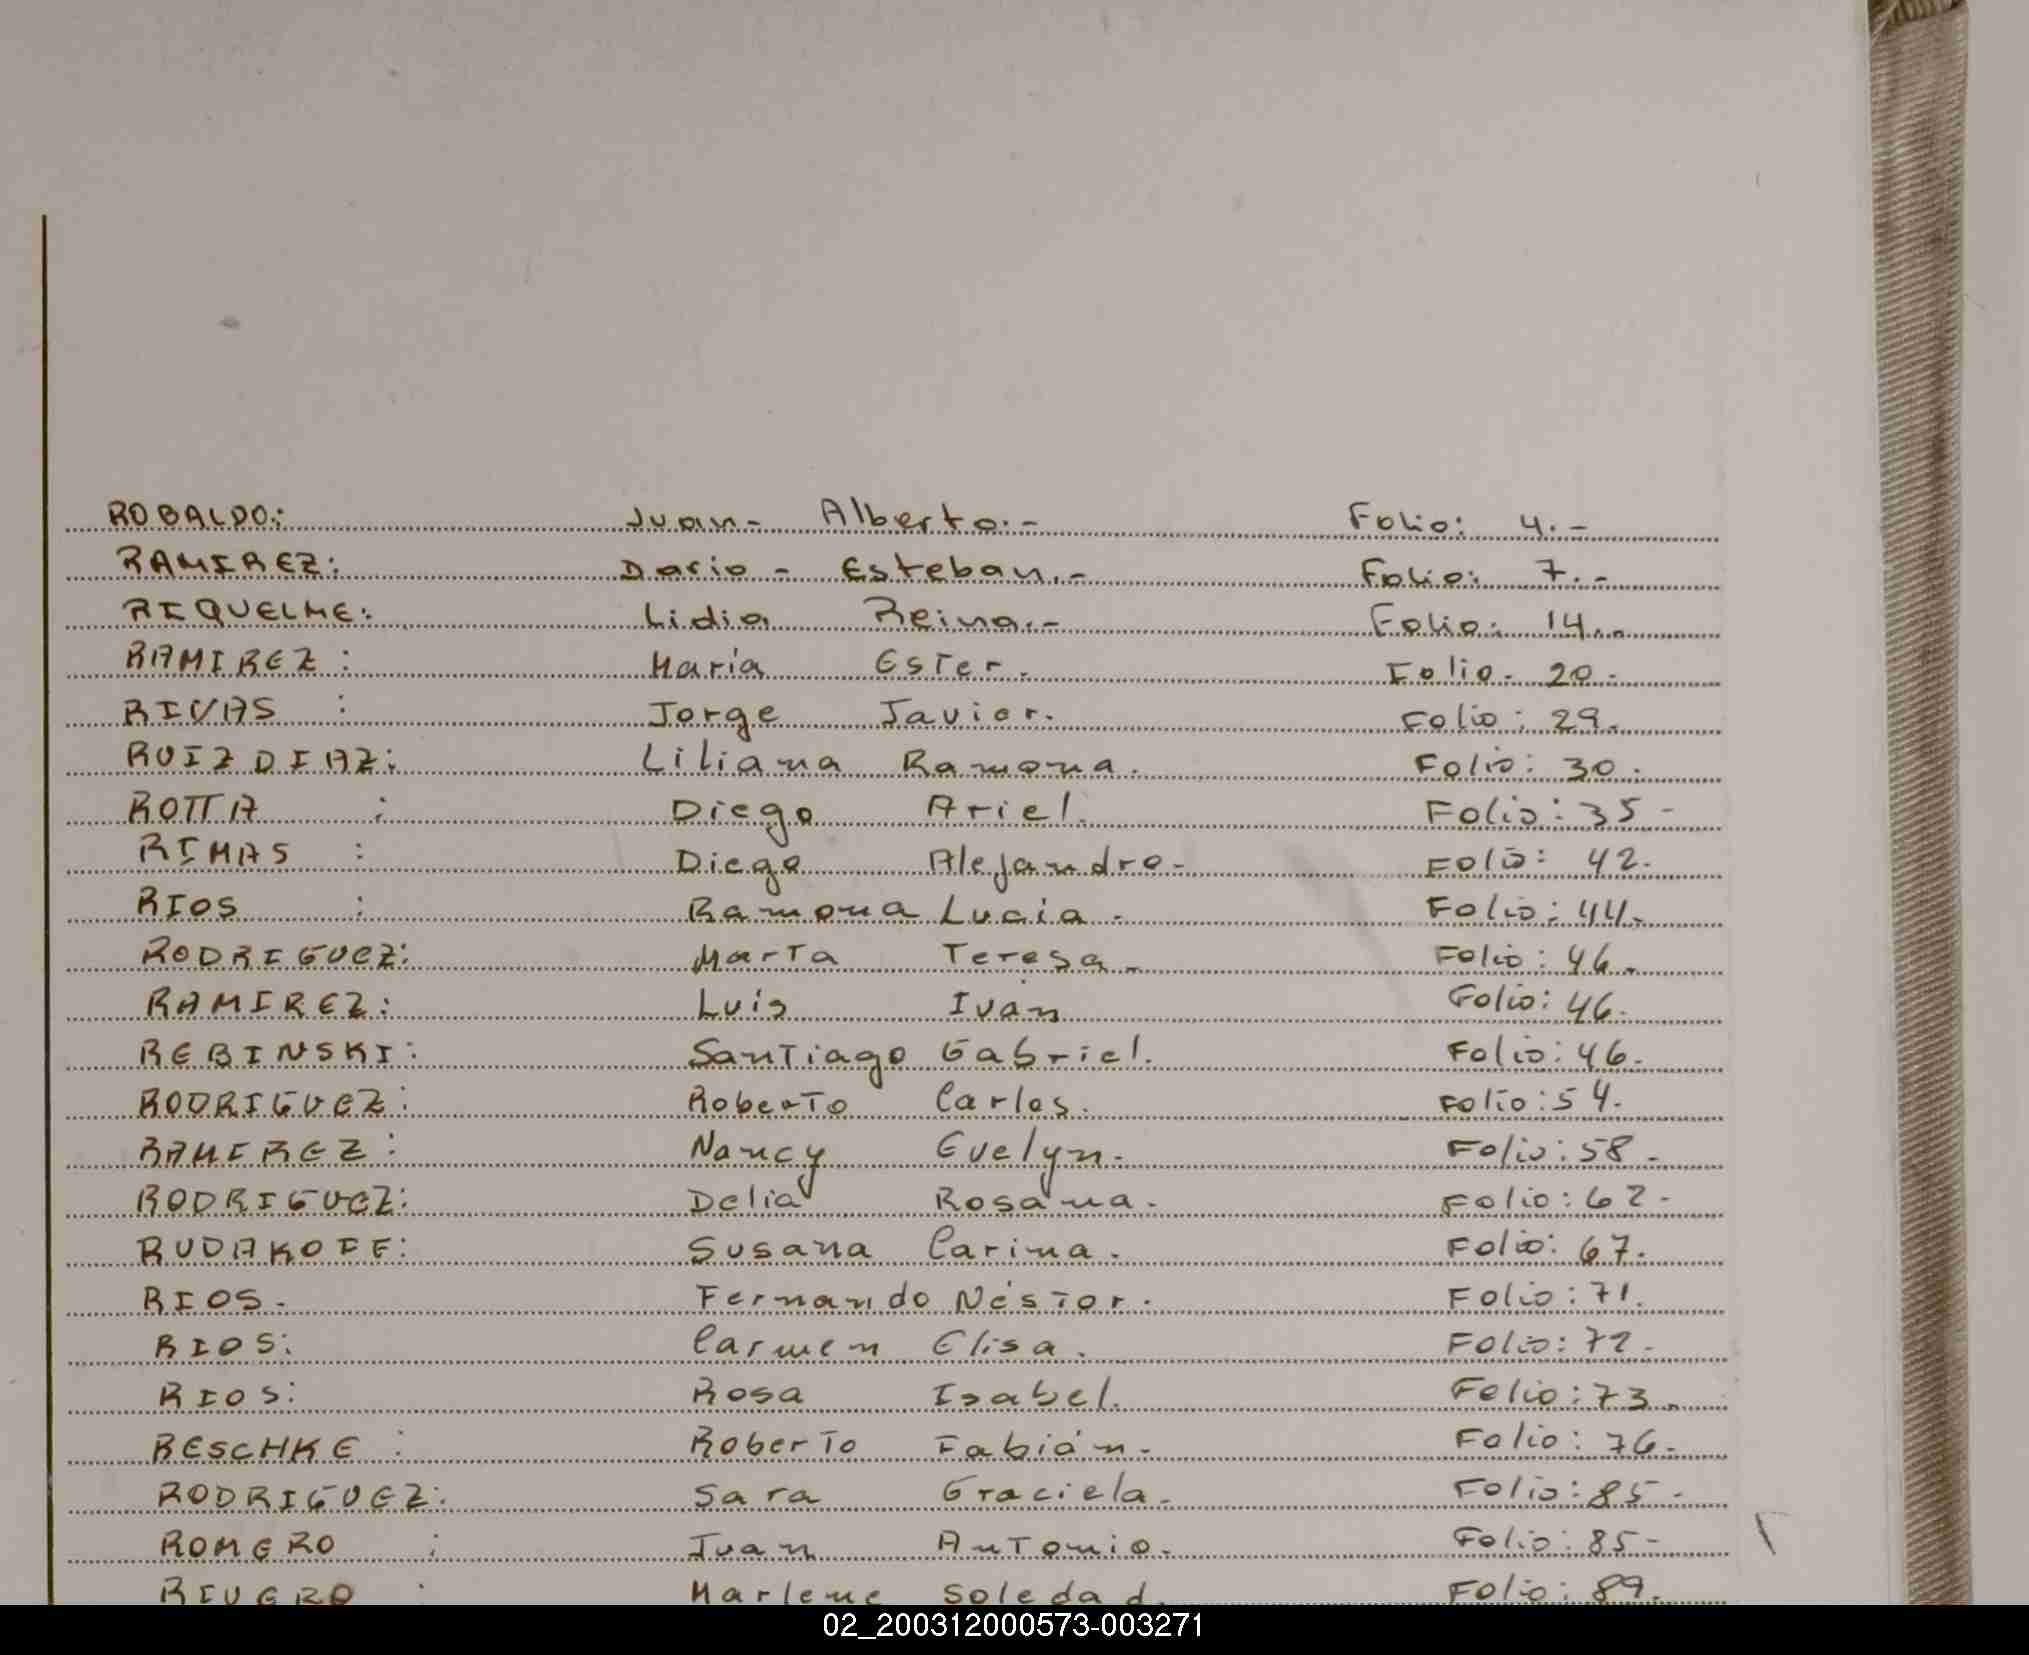 ROBALDO: Juan- Alberto.- Folio: 4.-
RAMIREZ: Dario - Esteban.- Folio: 7.-
RIQUELME: Lidia Reina.- Folio: 14..
RAMIREZ : Maria Ester. Folio. 20.
RIVAS : Jorge Javier. Folio: 29.
RUIZ DIAZ: Liliana Ramona. Folio: 30.
ROTTA : Diego Ariel. Folio: 35-
RIMAS : Diego Alejandro- Folio: 42.
RIOS : Ramona Lucia - Folio: 44.
RODRIGUEZ: Marta Teresa. Folio: 46.
RAMIREZ: Luis Iván Folio: 46.
REBINSKI: Santiago Gabriel. Folio: 46.
RODRIGUEZ: Roberto Carlos. Folio: 54.
RAMIREZ: Nancy Evelyn. Folio: 58.
RODRIGUEZ: Delia Rosana. Folio: 62-
RUDAKOFF: Susana Carina. Folio: 67.
RIOS. Fernando Néstor. Folio: 71.
RIOS: Carmen Elisa. Folio: 72.
RIOS: Rosa Isabel. Folio: 73.
RESCHKE : Roberto Fabián. Folio: 76.
RODRIGUEZ: Sara Graciela. Folio: 85-
ROMERO : Juan Antonio. Folio: 85-
RIVERO : Marlene Soledad. Folio: 89.
02_200312000573-003271